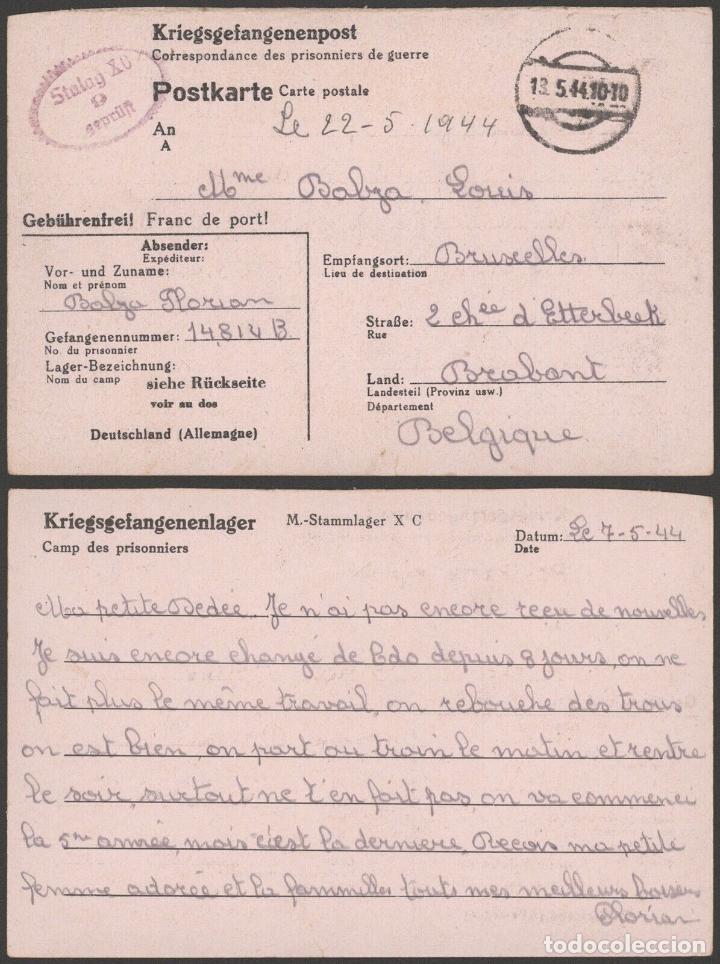 Kriegsgefangenenpost
Correspondance des prisonniers de guerre
Stalag XC
9
geprüft
Postkarte Carte postale
13.5.44.10-10
An
A
Le 22-5-1944
Mme Balza Louis
Gebührenfrei! Franc de port!
Absender:
Expéditeur:
Vor- und Zuname:
Nom et prénom
Balza Florian
Gefangenennummer: 14814 B
No. du prisonnier
Lager-Bezeichnung:
Nom du camp
siehe Rückseite
voir au dos
Deutschland (Allemagne)
Empfangsort: Bruxelles
Lieu de destination
Straße: 2 chée d'Etterbeek
Rue
Land: Brabant
Landesteil (Provinz usw.)
Département
Belgique
Kriegsgefangenenlager M.-Stammlager X C
Camp des prisonniers
Datum: Le 7-5-44
Date
Ma petite Dedée Je n'ai pas encore reçu de nouvelles
Je suis encore changé de Kdo depuis 8 jours, on ne
fait plus le même travail, on rebouche des trous
on est bien on part au train le matin et rentre
le soir, surtout ne t'en fait pas, on va commencé
la 5me année, mais c'est la derniere, Recois ma petite
femme adorée et la fammilles touts mes meilleurs baisers
Florian
todocoleccion.net